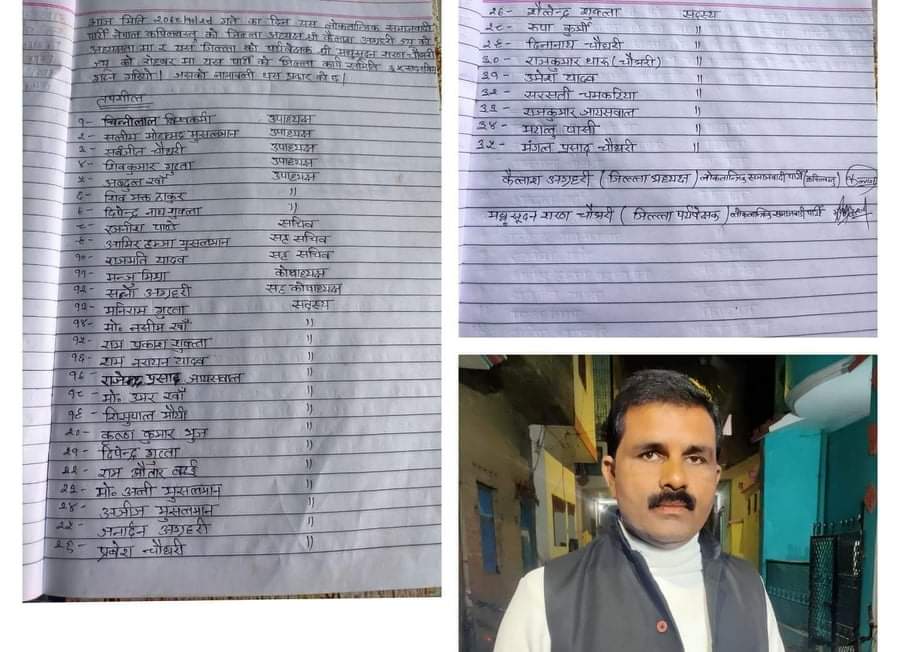 आज मिति २०८०।१।२५ गते का दिन यस लोकतान्त्रिक समाजवादी
पार्टी नेपाल कपिलवस्तु को जिल्ला अध्यक्ष श्री कैलाश अग्रहरी ज्यू को
अध्यक्षता मा र यस जिल्ला को पर्यवेक्षक श्री मधुसूदन शरण चौधरी
ज्यू को रोहवर मा यस पार्टी को जिल्ला कार्य समिति ३५ सदस्यीय
गठन गरियो। जसको नामावली यस प्रकार को छ।
तपशील
१- चिन्नीलाल विश्वकर्मा उपाध्यक्ष
२- सलीम मोहम्मद मुसलमान उपाध्यक्ष
३- सर्वजीत चौधरी उपाध्यक्ष
४- शिवकुमार गुप्ता उपाध्यक्ष
५- अब्दुल खाँ उपाध्यक्ष
६- शिव भक्त ठाकुर "
७- दिपेन्द्र नाथ शुक्ला "
८- रजनीश पाण्डे सचिव
९- आमिर हम्जा मुसलमान सह सचिव
१०- राजमति यादव सह सचिव
११- मन्जु मिश्रा कोषाध्यक्ष
१२- अग्रहरी सह कोषाध्यक्ष
१३- मनिराम गुप्ता सदस्य
१४- मो॰ नसीम खाँ "
१५- राम प्रकाश शुक्ला "
१६- राम नरायन यादव "
१७- राजेन्द्र प्रसाद जायसवाल "
१८- मो॰ उमर खाँ "
१९- शिसुपाल मौर्य "
२०- कुमार भुज "
२१- दिपेन्द्र गुप्ता "
२२- राम औतार "
२३- मो॰ अली मुसलमान "
२४- अजीज मुसलमान "
२५- जनार्दन अग्रहरी "
२६- प्रवेश चौधरी "
२७- शैलेन्द्र शुक्ला सदस्य
२८- रुपा कुर्मी "
२९- दिनानाथ चौधरी "
३०- रामकुमार थारु (चौधरी) "
३१- उमेश यादव "
३२- सरस्ती चमकटिया "
३३- रामकुमार जायसवाल "
३४- मंगलु पासी "
३५- मंगल प्रसाद चौधरी "
कैलाश अग्रहरी (जिल्ला अध्यक्ष) लोकतान्त्रिक समाजवादी पार्टी
मधुसूदन शरण चौधरी (जिल्ला पर्यवेक्षक) लोकतान्त्रिक समाजवादी पार्टी